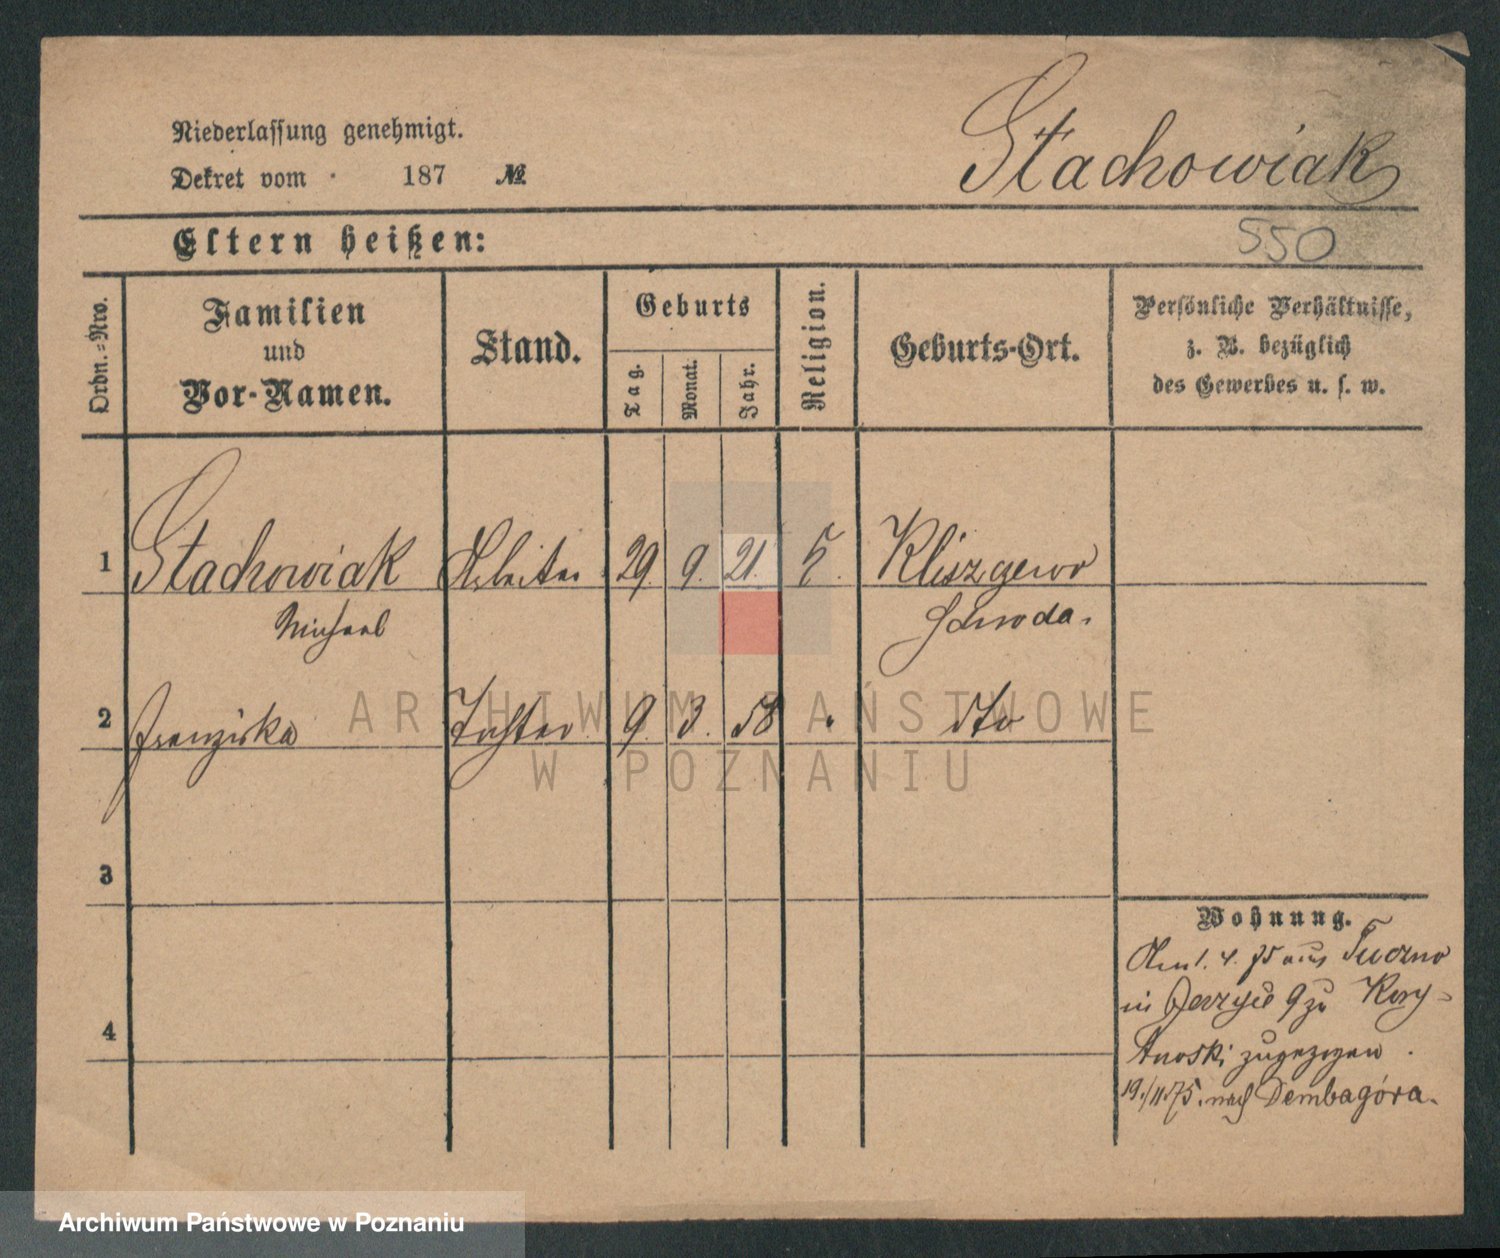 Niederlassung genehmigt.
Dekret vom 187 №
Stachowiak
550
Eltern heißen:
Ordn.-Nro.
Familien
und
Vor-Namen.
Stand.
Geburts
Tag.
Monat.
Jahr.
Religion.
Geburts-Ort.
Persönliche Verhältnisse,
z. B. bezüglich
des Gewerbes u. s. w.
1 Stachowiak Arbeiter 29. 9. 21.
Michael Schroda.
2 Franziska Tochter 9. 3. 58 dto
3
4
Wohnung.
1. 4. 75 aus Tuczno
in Jerzyce 9 zu
zugezogen.
19/11 75. nach Dembagóra.
ARCHIWUM PAŃSTWOWE
W POZNANIU
Archiwum Państwowe w Poznaniu